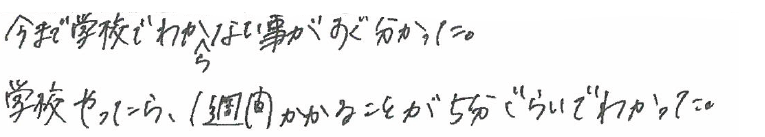 今まで学校でわからない事がすぐ分かった。
学校やったら、1週間かかることが5分ぐらいでわかった。